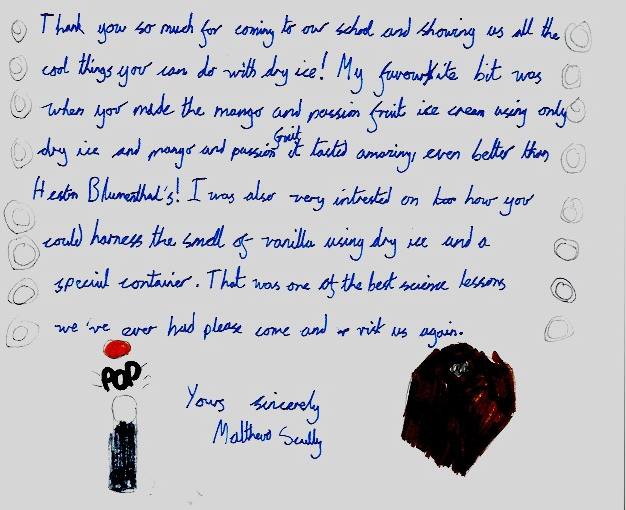 Thank you so much for coming to our school and showing us all the
cool things you can do with dry ice! My favourite bit was
when you made the mango and passion fruit ice cream using only
dry ice and mango and passion fruit it tasted amazing, even better than
Heston Blumenthal's! I was also very intrested on how you
could harness the smell of vanilla using dry ice and a
special container. That was one of the best science lessons
we've ever had please come and visit us again.
POP
Yours sincerely
Matthew Scully